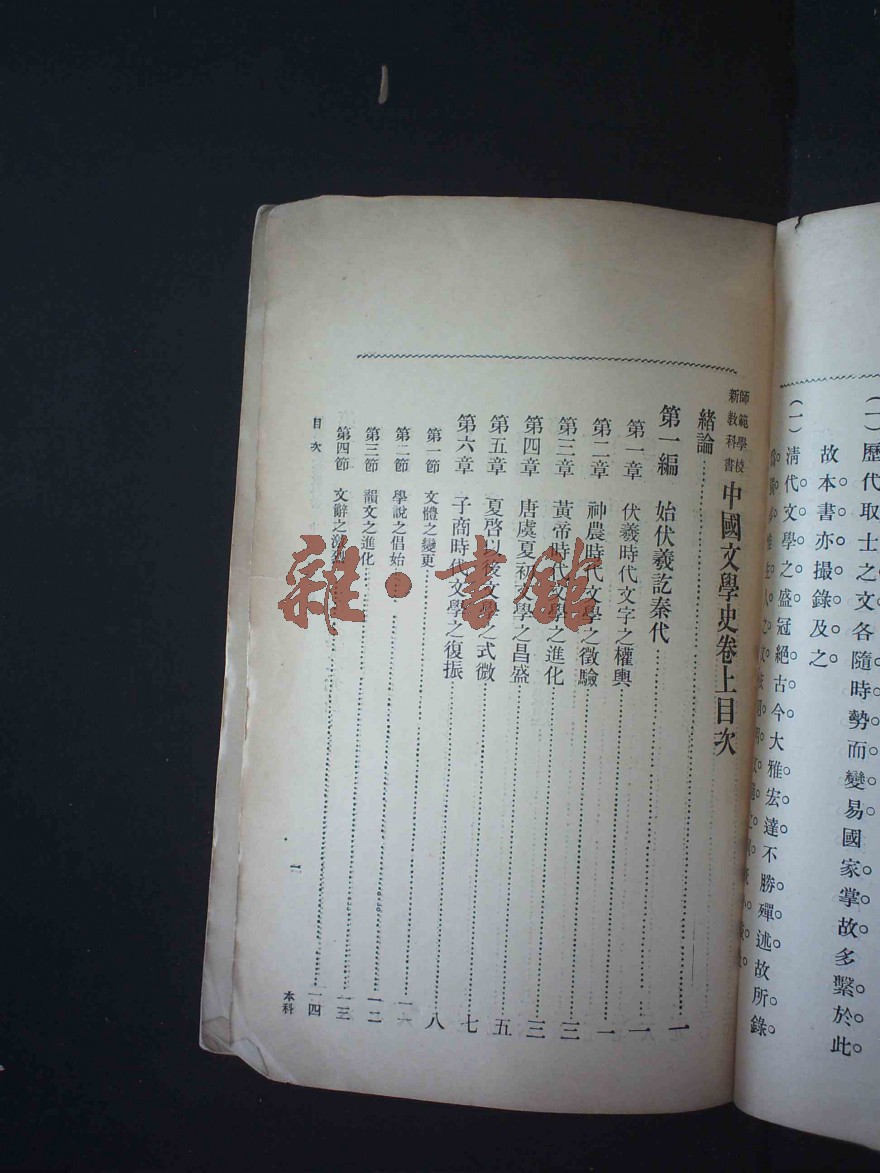 (一)歷代取士之文各隨時勢而變易國家掌故多繫於此。
故本書亦撮錄及之。
(一)清代文學之盛冠絕古今大雅宏達不勝殫述故所錄
師範學校新教科書 中國文學史卷上目次
緒論……一
第一編 始伏羲訖秦代……一
第一章 伏羲時代文字之權輿……一
第二章 神農時代文學之徵驗……三
第三章 黃帝時代文學之進化……三
第四章 唐虞夏初文學之昌盛……五
第五章 夏啓以後文學之式微……七
第六章 子商時代文學之復振……八
第一節 文體之變更……
第二節 學說之倡始……一二
第三節 韻文之進化……一三
第四節 文辭之……一四
目次
一
本科
雜·書館